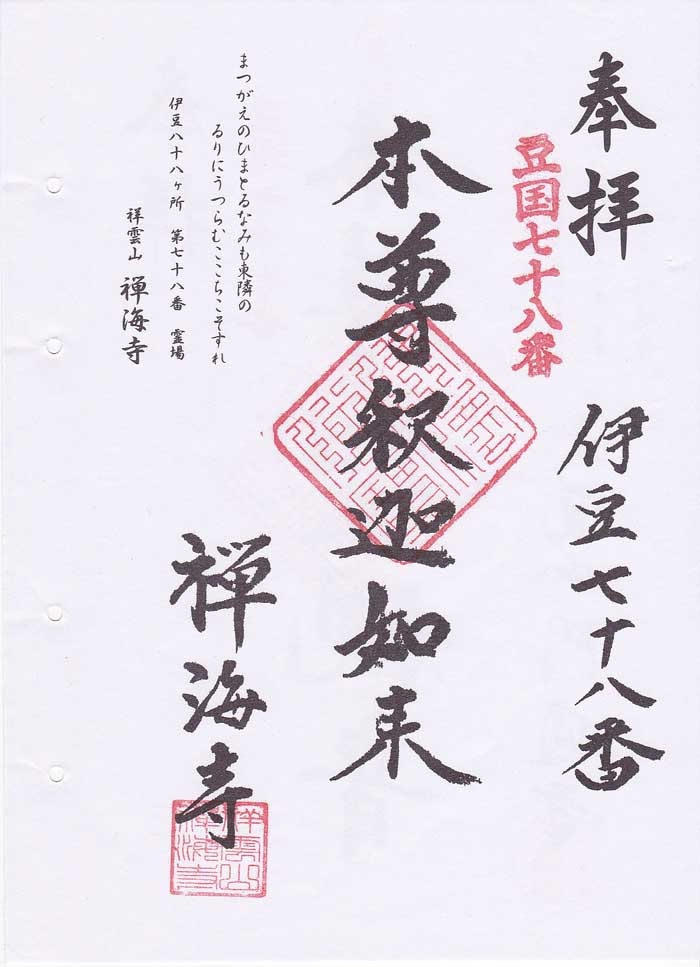 奉拝
伊豆七十八番
豆国七十八番
本尊釈迦如来
禅海寺
まつがえのひまとるなみも東隣の
るりにうつらむここちこそすれ
伊豆八十八ヶ所　第七十八番　霊場
祥雲山　禅海寺
祥雲山
禅海寺